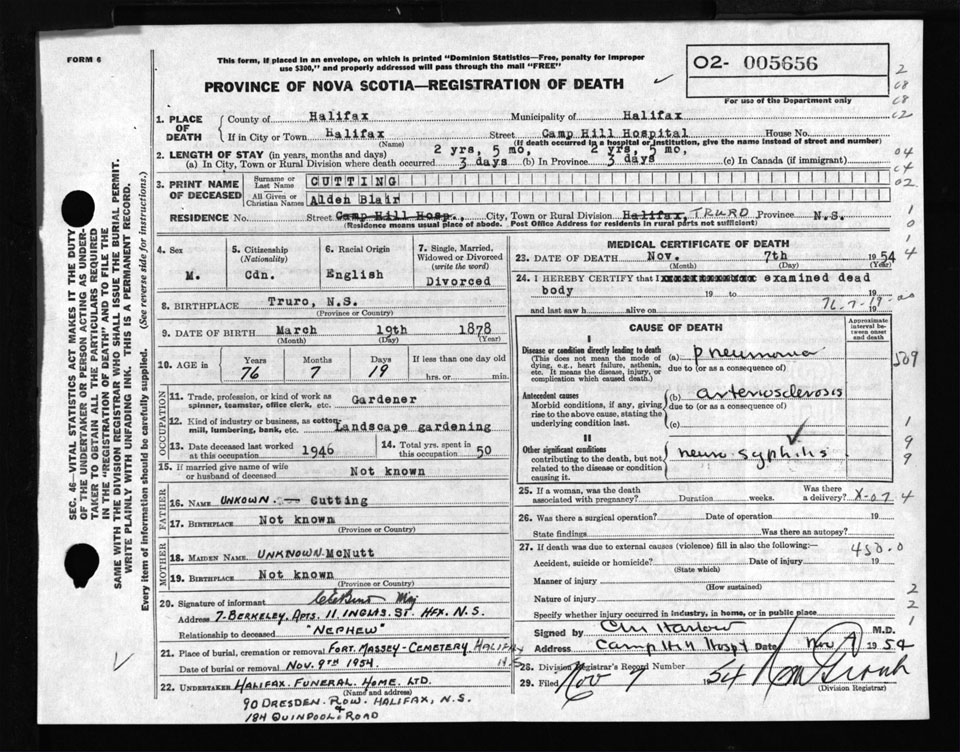 FORM 6
This form, if placed in an envelope, on which is printed "Dominion Statistics—Free, penalty for improper
use $300," and properly addressed will pass through the mail "FREE"
PROVINCE OF NOVA SCOTIA—REGISTRATION OF DEATH
O2- 005656
For use of the Department only
1. PLACE OF DEATH
County of Halifax Municipality of Halifax
If in City or Town Halifax Street Camp Hill Hospital House No.
(Name) (If death occurred in a hospital or institution, give the name instead of street and number)
2. LENGTH OF STAY (in years, months and days) 2 yrs, 5 mo, 2 yrs, 5 mo,
(a) In City, Town or Rural Division where death occurred 3 days (b) In Province 3 days (c) In Canada (if immigrant)
3. PRINT NAME OF DECEASED
Surname or Last Name CUTTING
All Given or Christian Names Alden Blair
RESIDENCE No. Street Camp Hill Hosp., City, Town or Rural Division Halifax, TRURO Province N.S.
(Residence means usual place of abode. Post Office Address for residents in rural parts not sufficient)
4. Sex
M.
5. Citizenship
(Nationality)
Cdn.
6. Racial Origin
English
7. Single, Married,
Widowed or Divorced
(write the word)
Divorced
8. BIRTHPLACE Truro, N.S.
(Province or Country)
9. DATE OF BIRTH March 19th 1878
(Month) (Day) (Year)
10. AGE in
Years Months Days If less than one day old
76 7 19 hrs. or min.
OCCUPATION
11. Trade, profession, or kind of work as
spinner, teamster, office clerk, etc. Gardener
12. Kind of industry or business, as cotton
mill, lumbering, bank, etc. Landscape gardening
13. Date deceased last worked
at this occupation 1946
14. Total yrs. spent in
this occupation 50
15. If married give name of wife
or husband of deceased Not known
FATHER
16. NAME UNKOWN. Cutting
17. BIRTHPLACE Not known
(Province or Country)
MOTHER
18. MAIDEN NAME UNKNOWN. McNutt
19. BIRTHPLACE Not known
(Province or Country)
20. Signature of informant Maj
Address 7-BERKELEY, APTS. 11 INGLIS. ST. HFX. N.S.
Relationship to deceased "NEPHEW"
21. Place of burial, cremation or removal FORT. MASSEY-CEMETERY, HALIFAX
N.S
Date of burial or removal NOV. 9TH 1954.
22. UNDERTAKER HALIFAX. FUNERAL. HOME. LTD.
(Name and address)
90 DRESDEN. ROW. HALIFAX, N.S.
&
184 QUINPOOL. ROAD
MEDICAL CERTIFICATE OF DEATH
23. DATE OF DEATH Nov. 7th 1954
(Month) (Day) (Year)
24. I HEREBY CERTIFY that I examined dead
body 19 to 19
and last saw h alive on 19
76-7-19-00
CAUSE OF DEATH
Approximate
interval be-
tween onset
and death
I
Disease or condition directly leading to death
(This does not mean the mode of
dying, e.g., heart failure, asthenia,
etc. It means the disease, injury, or
complication which caused death.)
(a) Pneumonia
due to (or as a consequence of)
Antecedent causes
Morbid conditions, if any, giving
rise to the above cause, stating the
underlying condition last.
(b) arteriosclerosis
due to (or as a consequence of)
(c)
II
Other significant conditions
contributing to the death, but not
related to the disease or condition
causing it.
neuro syphilis
25. If a woman, was the death
associated with pregnancy? Duration weeks. Was there
a delivery? X-07
26. Was there a surgical operation? Date of operation 19
State findings Was there an autopsy?
27. If death was due to external causes (violence) fill in also the following:— 450.0
Accident, suicide or homicide? Date of injury 19
(State which)
Manner of injury
(How sustained)
Nature of injury
Specify whether injury occurred in industry, in home, or in public place
Signed by Harlow M.D.
Address Camp Hill Hospt Date Nov 7 1954
28. Division Registrar's Record Number
29. Filed Nov 9 1954
(Division Registrar)
SEC. 46—VITAL STATISTICS ACT MAKES IT THE DUTY
OF THE UNDERTAKER OR PERSON ACTING AS UNDER-
TAKER TO OBTAIN ALL THE PARTICULARS REQUIRED
IN THE "REGISTRATION OF DEATH" AND TO FILE THE
SAME WITH THE DIVISION REGISTRAR WHO SHALL ISSUE THE BURIAL PERMIT.
WRITE PLAINLY WITH UNFADING INK. THIS IS A PERMANENT RECORD.
Every item of information should be carefully supplied. (See reverse side for instructions.)
2
C8
C8
C2
04
C4
02
1
0
1
4
509
1
9
9
4
2
2
1